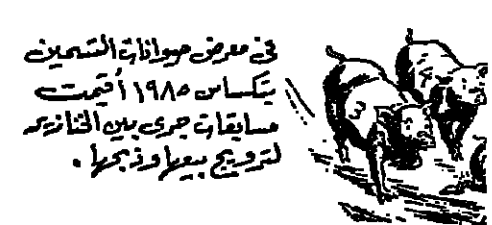 فى معرض حيوانات التسمين
بتكساس ١٩٨٥ أقيمت
مسابقات جرى بين الخنازير
لترويج بيعها وذبحها .